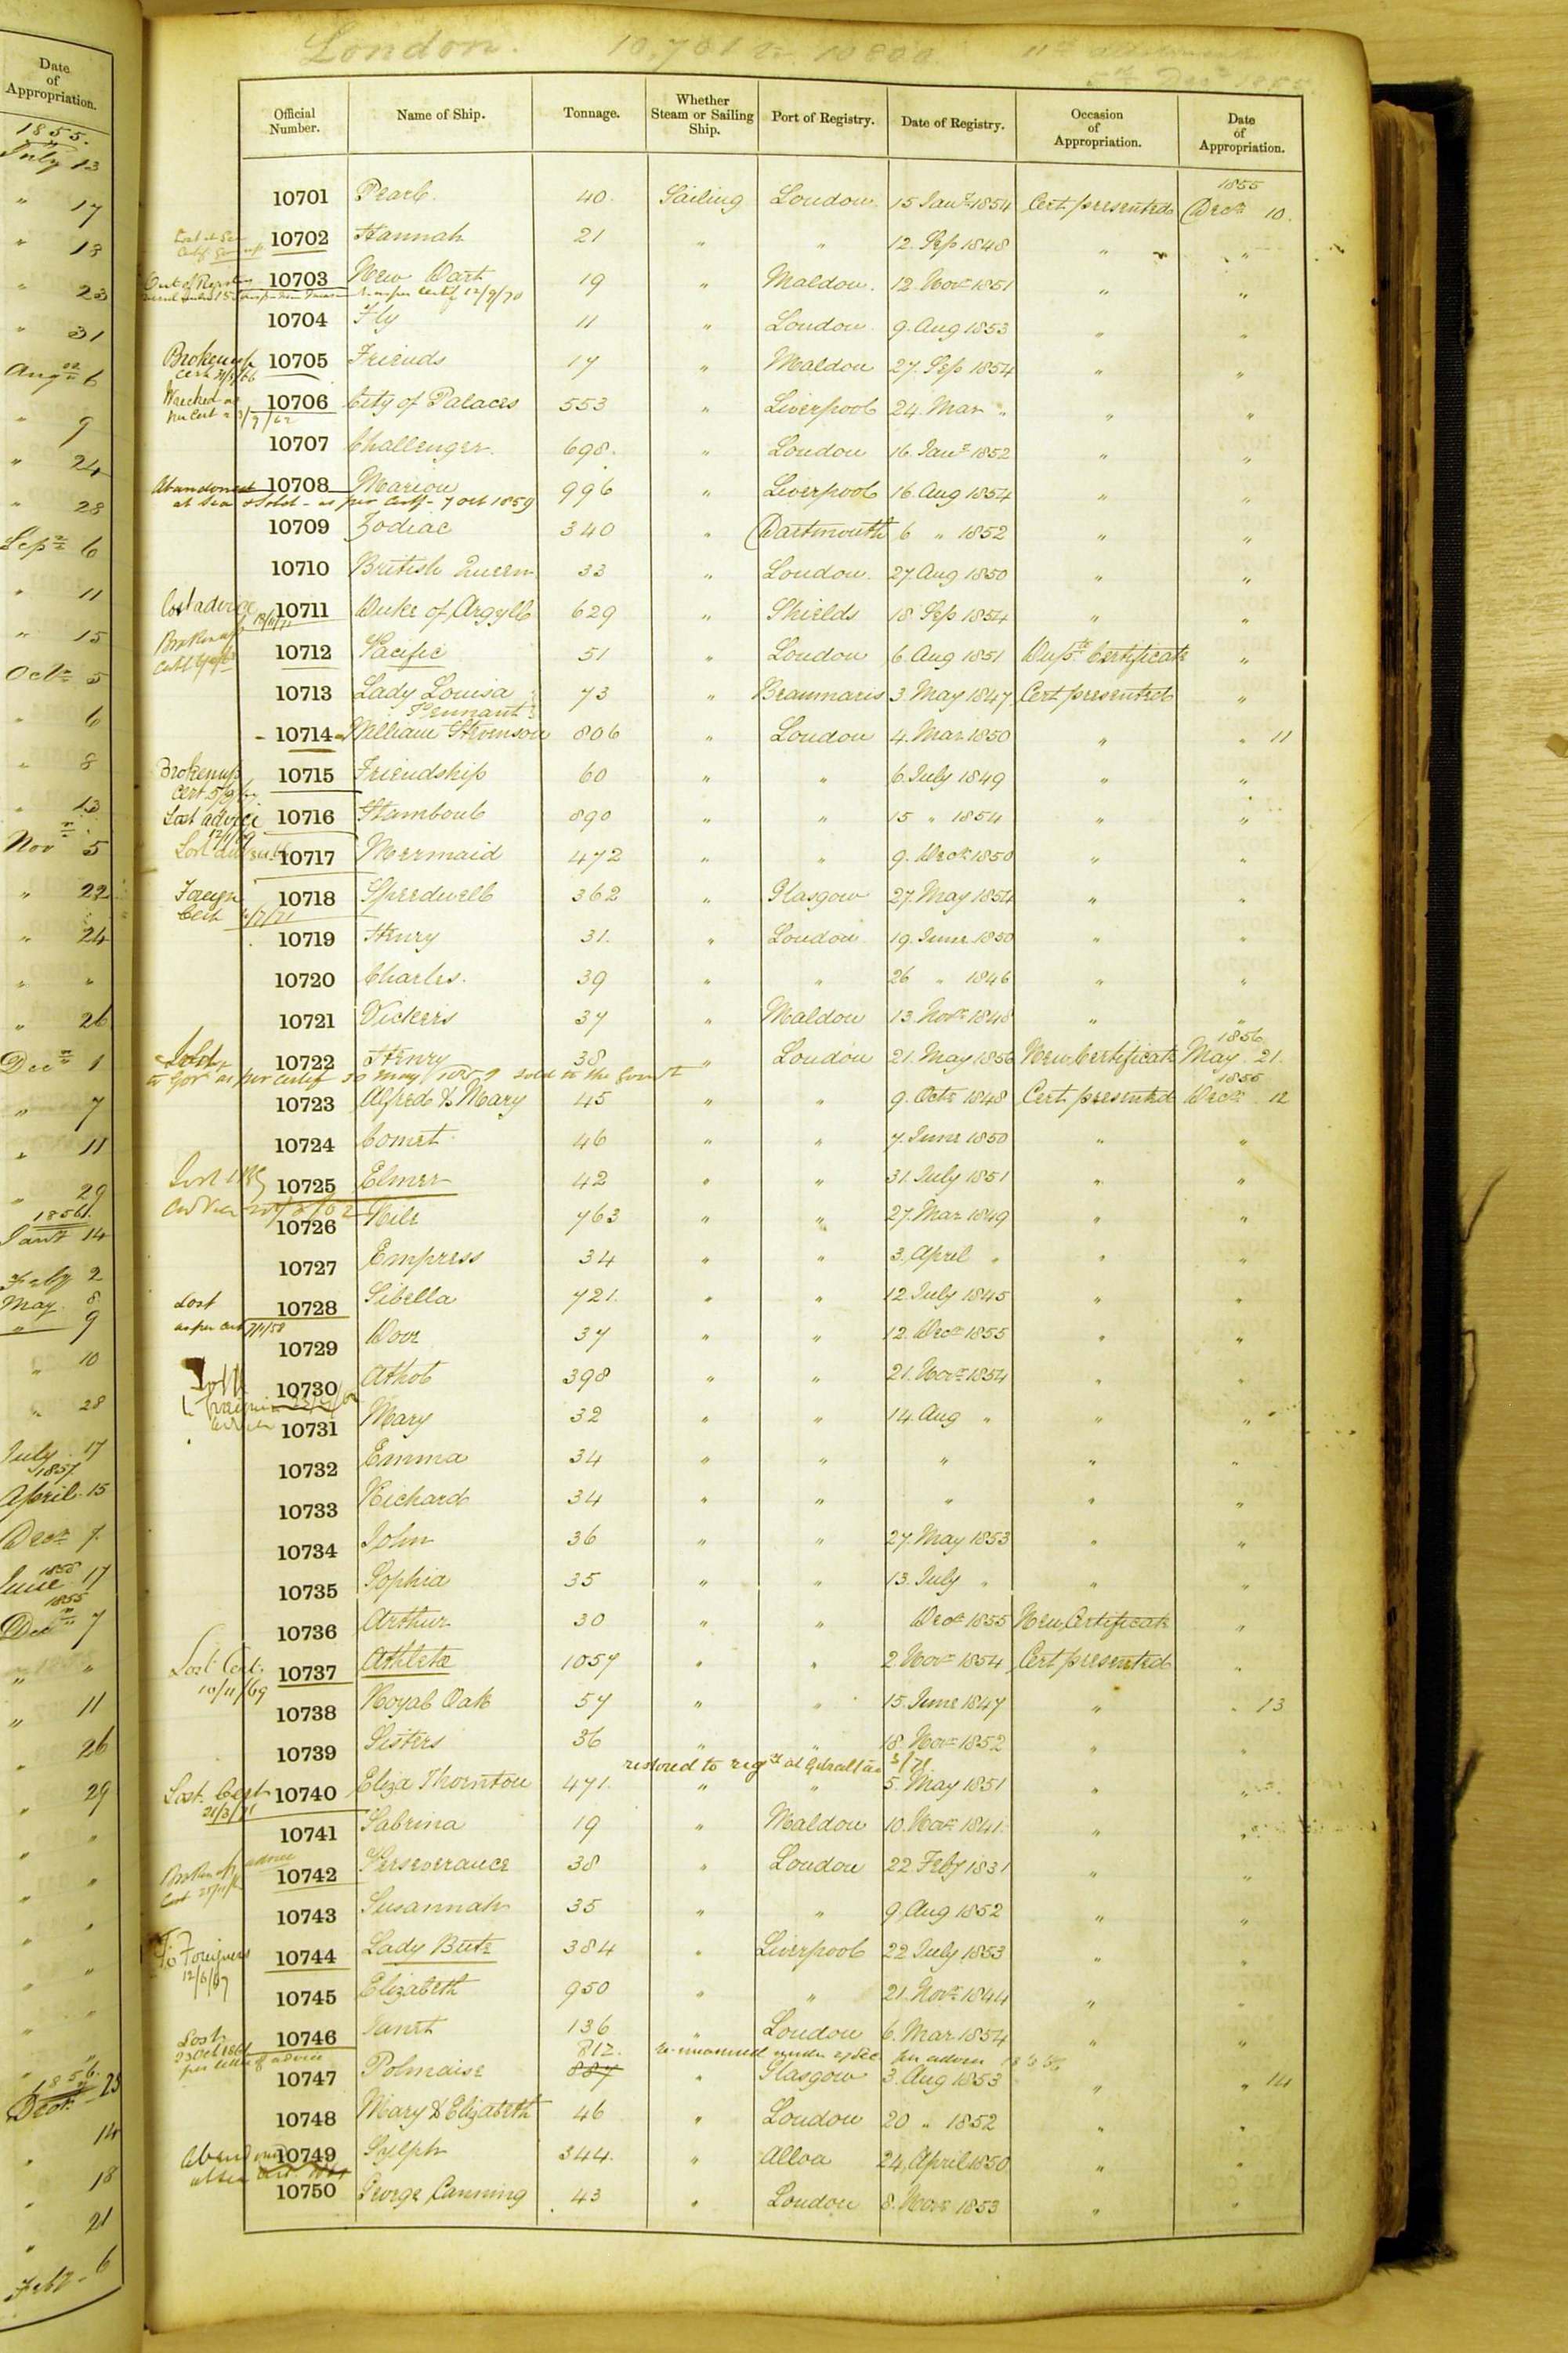 Date
of
Appropriation.
1855.
July 13
" 17
" 18
" 23
" 31
Aug 6
" 9
" 24
" 28
Sep 6
" 11
" 15
Oct 5
" 6
" 8
" 13
Nov 5
" 22
" 24
" "
" 26
Dec 1
" 7
" 11
" 29
1856.
Jany 14
Feby 2
May 8
" 9
" 10
" 28
July 17
1857
April 15
Decr 7
1858
June 17
1855
Decr 7
" "
" 11
" 26
" 29
London. 10,701 to 10800
5 Decr 1855
Official Number. Name of Ship. Tonnage. Whether Steam or Sailing Ship. Port of Registry. Date of Registry. Occasion of Appropriation. Date of Appropriation.
1855
10701 Pearl. 40. Sailing London 15 Jany 1854 Cert presented Decr 10.
Lost at Sea
10702 Hannah 21 " " 12 Sep 1848 " "
10703 New Dart 19 " Maldon. 12 Novr 1851 " "
Out of Register
as per Certif 12/9/70
10704 Fly 11 " London 9. Aug 1853 " "
Broken up 10705 Friends 17 " Maldon 27. Sep 1854 " "
Cert
Wrecked 10706 City of Palaces 553 " Liverpool 24. Mar " " "
10707 Challenger. 698. " London 16. Jany 1852 " "
Abandoned 10708 Marion 996 " Liverpool 16. Aug 1854 " "
at Sea & Sold - as per Certf - 7 Oct 1859
10709 Zodiac 340 " Dartmouth 6 " 1852 " "
10710 British Queen 33 " London. 27 Aug 1850 " "
Lost advice 10711 Duke of Argyll 629 " Shields 18 Sep 1854 " "
Broken up 10712 Pacific 51 " London 6. Aug 1851 Dup Certificate "
10713 Lady Louisa 73 " Beaumaris 3. May 1847 Cert presented "
Pennant
10714 William Thomson 806 " London 4. Mar 1850 " " 11
Broken up 10715 Friendship 60 " " 6. July 1849 " "
Cert 5/9/
Lost advice 10716 Stamboul 890 " " 15 " 1854 " "
10717 Mermaid 472 " " 9. Decr 1850 " "
Foreign 10718 Speedwell 362 " Glasgow 27. May 1854 " "
Cert /7/71
10719 Henry 31. " London 19. June 1850 " "
10720 Charles. 39 " " 26 " 1846 " "
10721 Vickers 37 " Maldon 13. Novr 1848 " "
1856
Sold 10722 Henry 38 " London 21. May 1856 New Certificate May 21.
to Govt as per Certif 30 May 1857 sold to the Govmt
1855
10723 Alfred & Mary 45 " " 9. Octr 1848 Cert presented Decr 12
10724 Comet 46 " " 7. June 1850 " "
10725 Elmer 42 " " 31. July 1851 " "
10726 Nile 763 " " 27. Mar 1849 " "
10727 Empress 34 " " 3. April " " "
Lost 10728 Sibella 721. " " 12. July 1845 " "
as per Cert 7/1/58
10729 Dove 37 " " 12. Decr 1855 " "
10730 Athol 398 " " 21. Novr 1854 " "
10731 Mary 32 " " 14. Aug " " "
10732 Emma 34 " " " " "
10733 Richard 34 " " " " "
10734 John 36 " " 27. May 1853 " "
10735 Sophia 35 " " 13. July " " "
10736 Arthur 30 " " Decr 1855 New Certificate "
Lost Cert. 10737 Athletæ 1057 " " 2. Novr 1854 Cert presented "
10/11/69
10738 Royal Oak 57 " " 15. June 1847 " " 13
10739 Sisters 36 " " 18. Novr 1852 " "
restored to regy at Gibraltar 3/71
Lost. Cert 10740 Eliza Thornton 471. " " 5. May 1851 " "
21/3/71
10741 Sabrina 19 " Maldon 10. Novr 1841 " "
Broken up advice 10742 Perseverance 38 " London 22 Feby 1831 " "
10743 Susannah 35 " " 9. Aug 1852 " "
To Foreigners 10744 Lady Bute 384 " Liverpool 22 July 1853 " "
12/6/67
10745 Elizabeth 950 " " 21. Novr 1844 " "
Lost 10746 Janet 136 " London 6. Mar 1854 " "
23 Oct 1861
per letter of advice
812. re-measured under
10747 Polmaise 887 " Glasgow 3. Aug 1853 " " 14
10748 Mary & Elizabeth 46 " London 20 " 1852 " "
Abandoned 10749 Sylph 344. " Alloa 24. April 1850 " "
at sea
10750 George Canning 43 " London 8. Novr 1853 " "
1856.
Decr 23
14
" 18
" 21
Feby 6